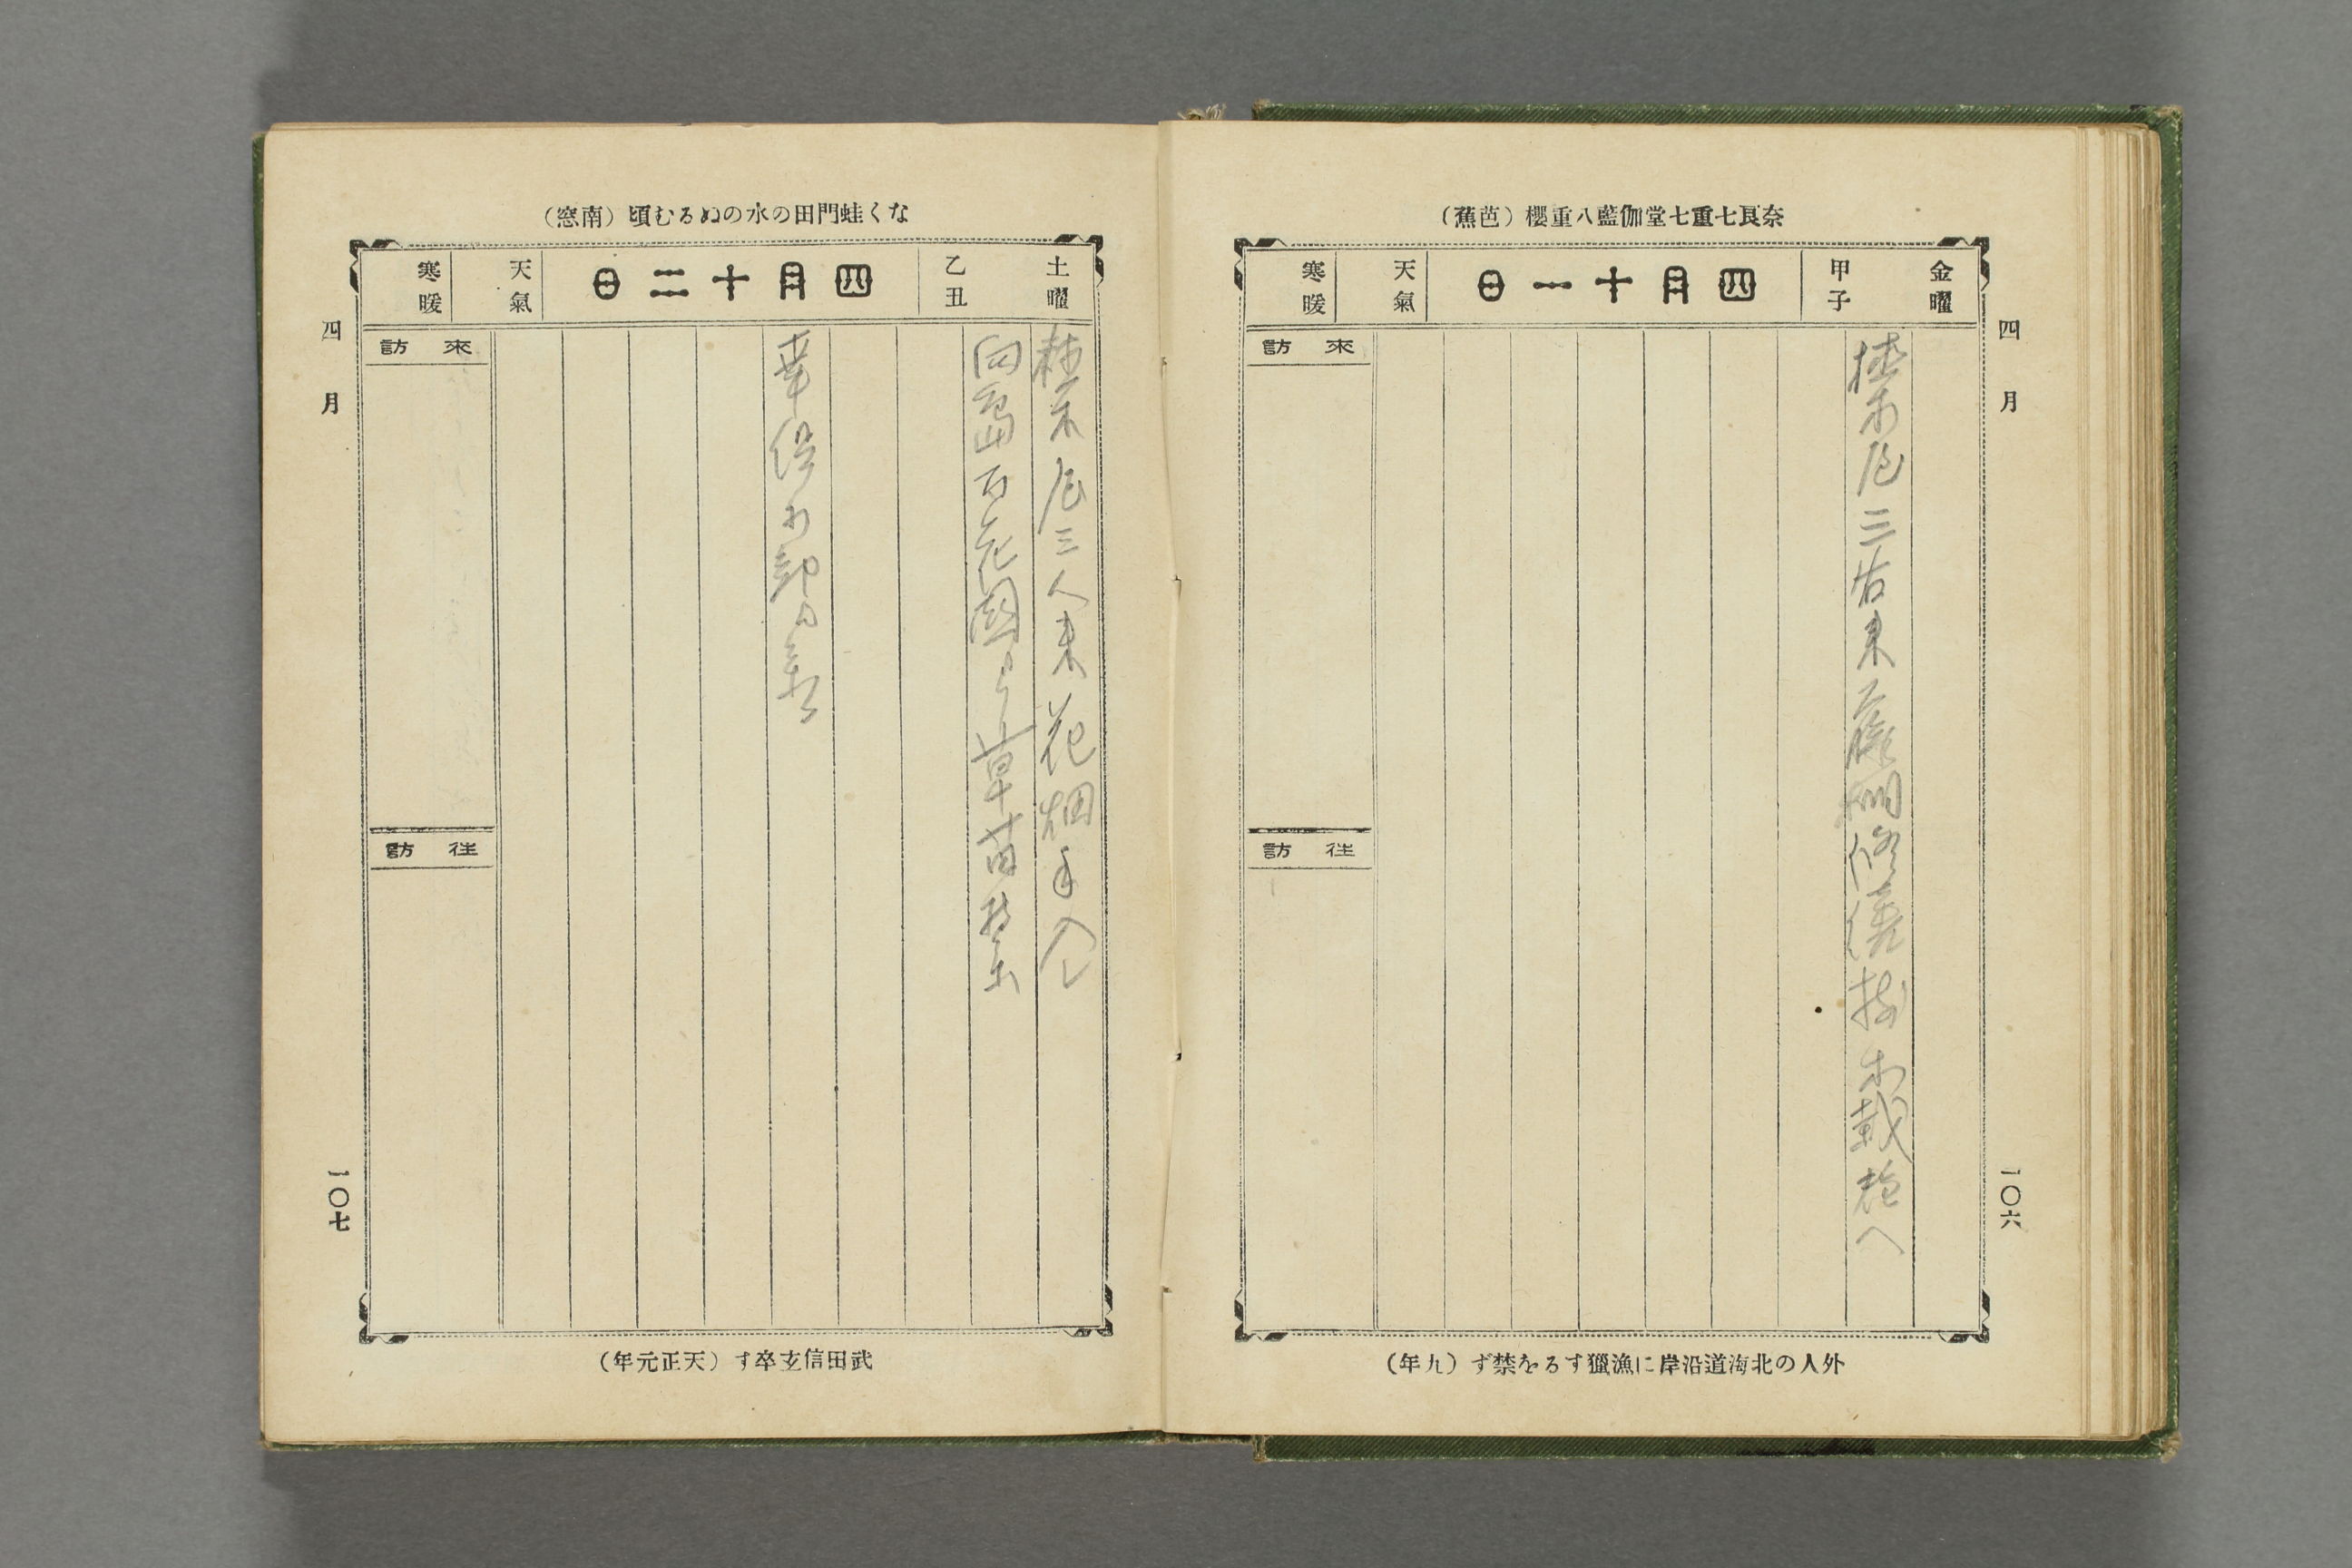 奈良七重七堂伽藍八重櫻（芭蕉）
金曜
甲子
四月十一日
天氣
寒暖
植木屋三右来 藤棚修繕 植木栽培へ
來訪
往訪
四月
一〇六
外人の北海道沿岸に漁獵するを禁ず（九年）
なく蛙門田の水のぬるむ頃（南窓）
土曜
乙丑
四月十二日
天氣
寒暖
植木屋三人来 花畑手入し
向島百花園より草苗
來訪
往訪
四月
一〇七
武田信玄卒す（天正元年）